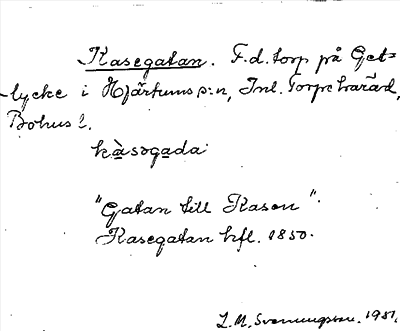 Kasegatan. F.d. torp på Get=
lycke i Hjärtums s:n, Inl. Torpe härad,
Bohus l.
kàsəgada
"Gatan till Kasen".
Kasegatan hfl. 1850.
1981.